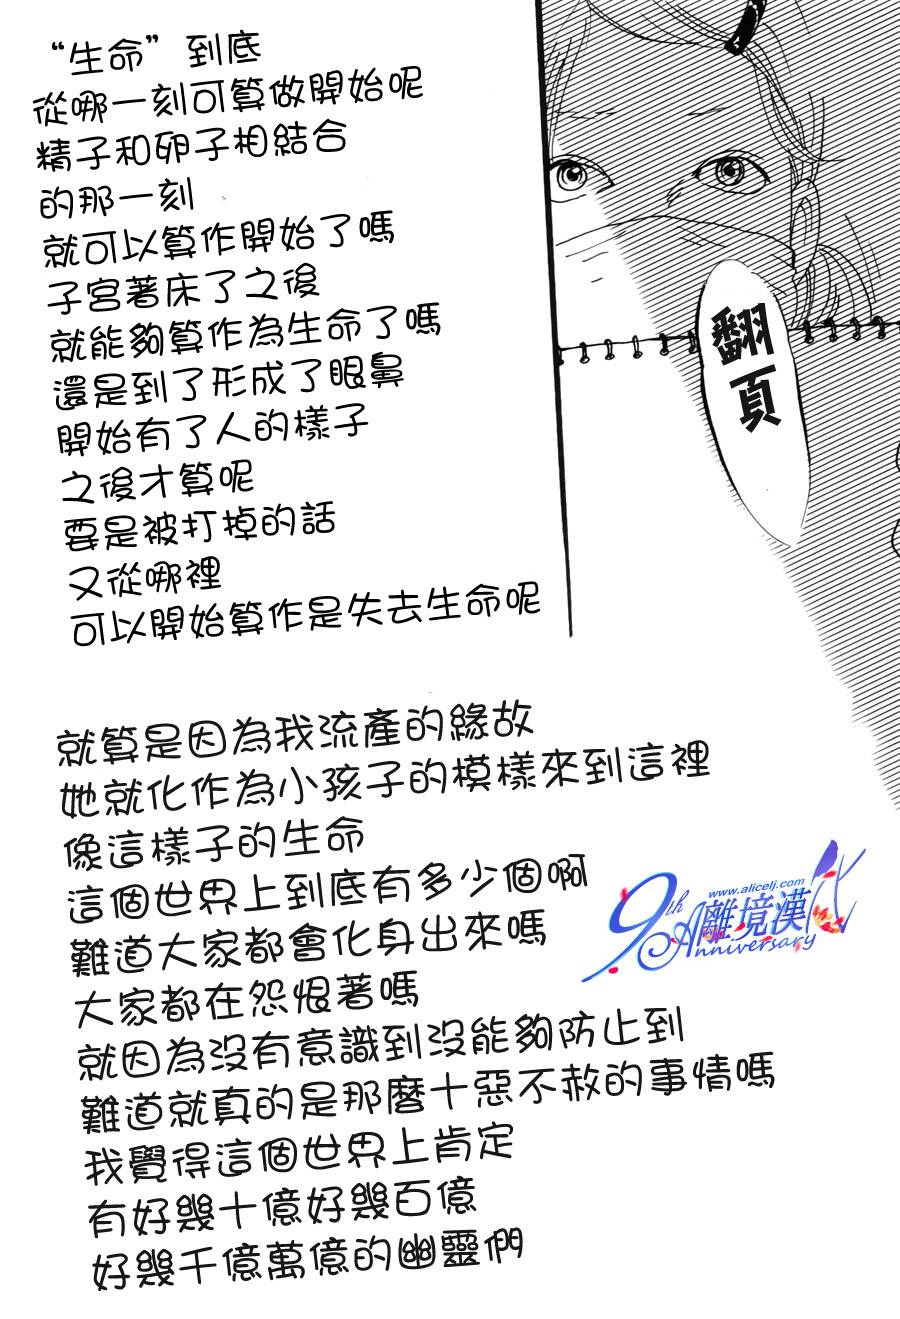 “生命”到底
從哪一刻可算做開始呢
精子和卵子相結合
的那一刻
就可以算作開始了嗎
子宮著床了之後
就能夠算作為生命了嗎
還是到了形成了眼鼻
開始有了人的樣子
之後才算呢
要是被打掉的話
又從哪裡
可以開始算作是失去生命呢
翻頁
就算是因為我流產的緣故
她就化作為小孩子的模樣來到這裡
像這樣子的生命
這個世界上到底有多少個啊
難道大家都會化身出來嗎
大家都在怨恨著嗎
就因為沒有意識到沒能夠防止到
難道就真的是那麼十惡不赦的事情嗎
我覺得這個世界上肯定
有好幾十億好幾百億
好幾千億萬億的幽靈們
www.alicelj.com
9th
離境漢化
Anniversary